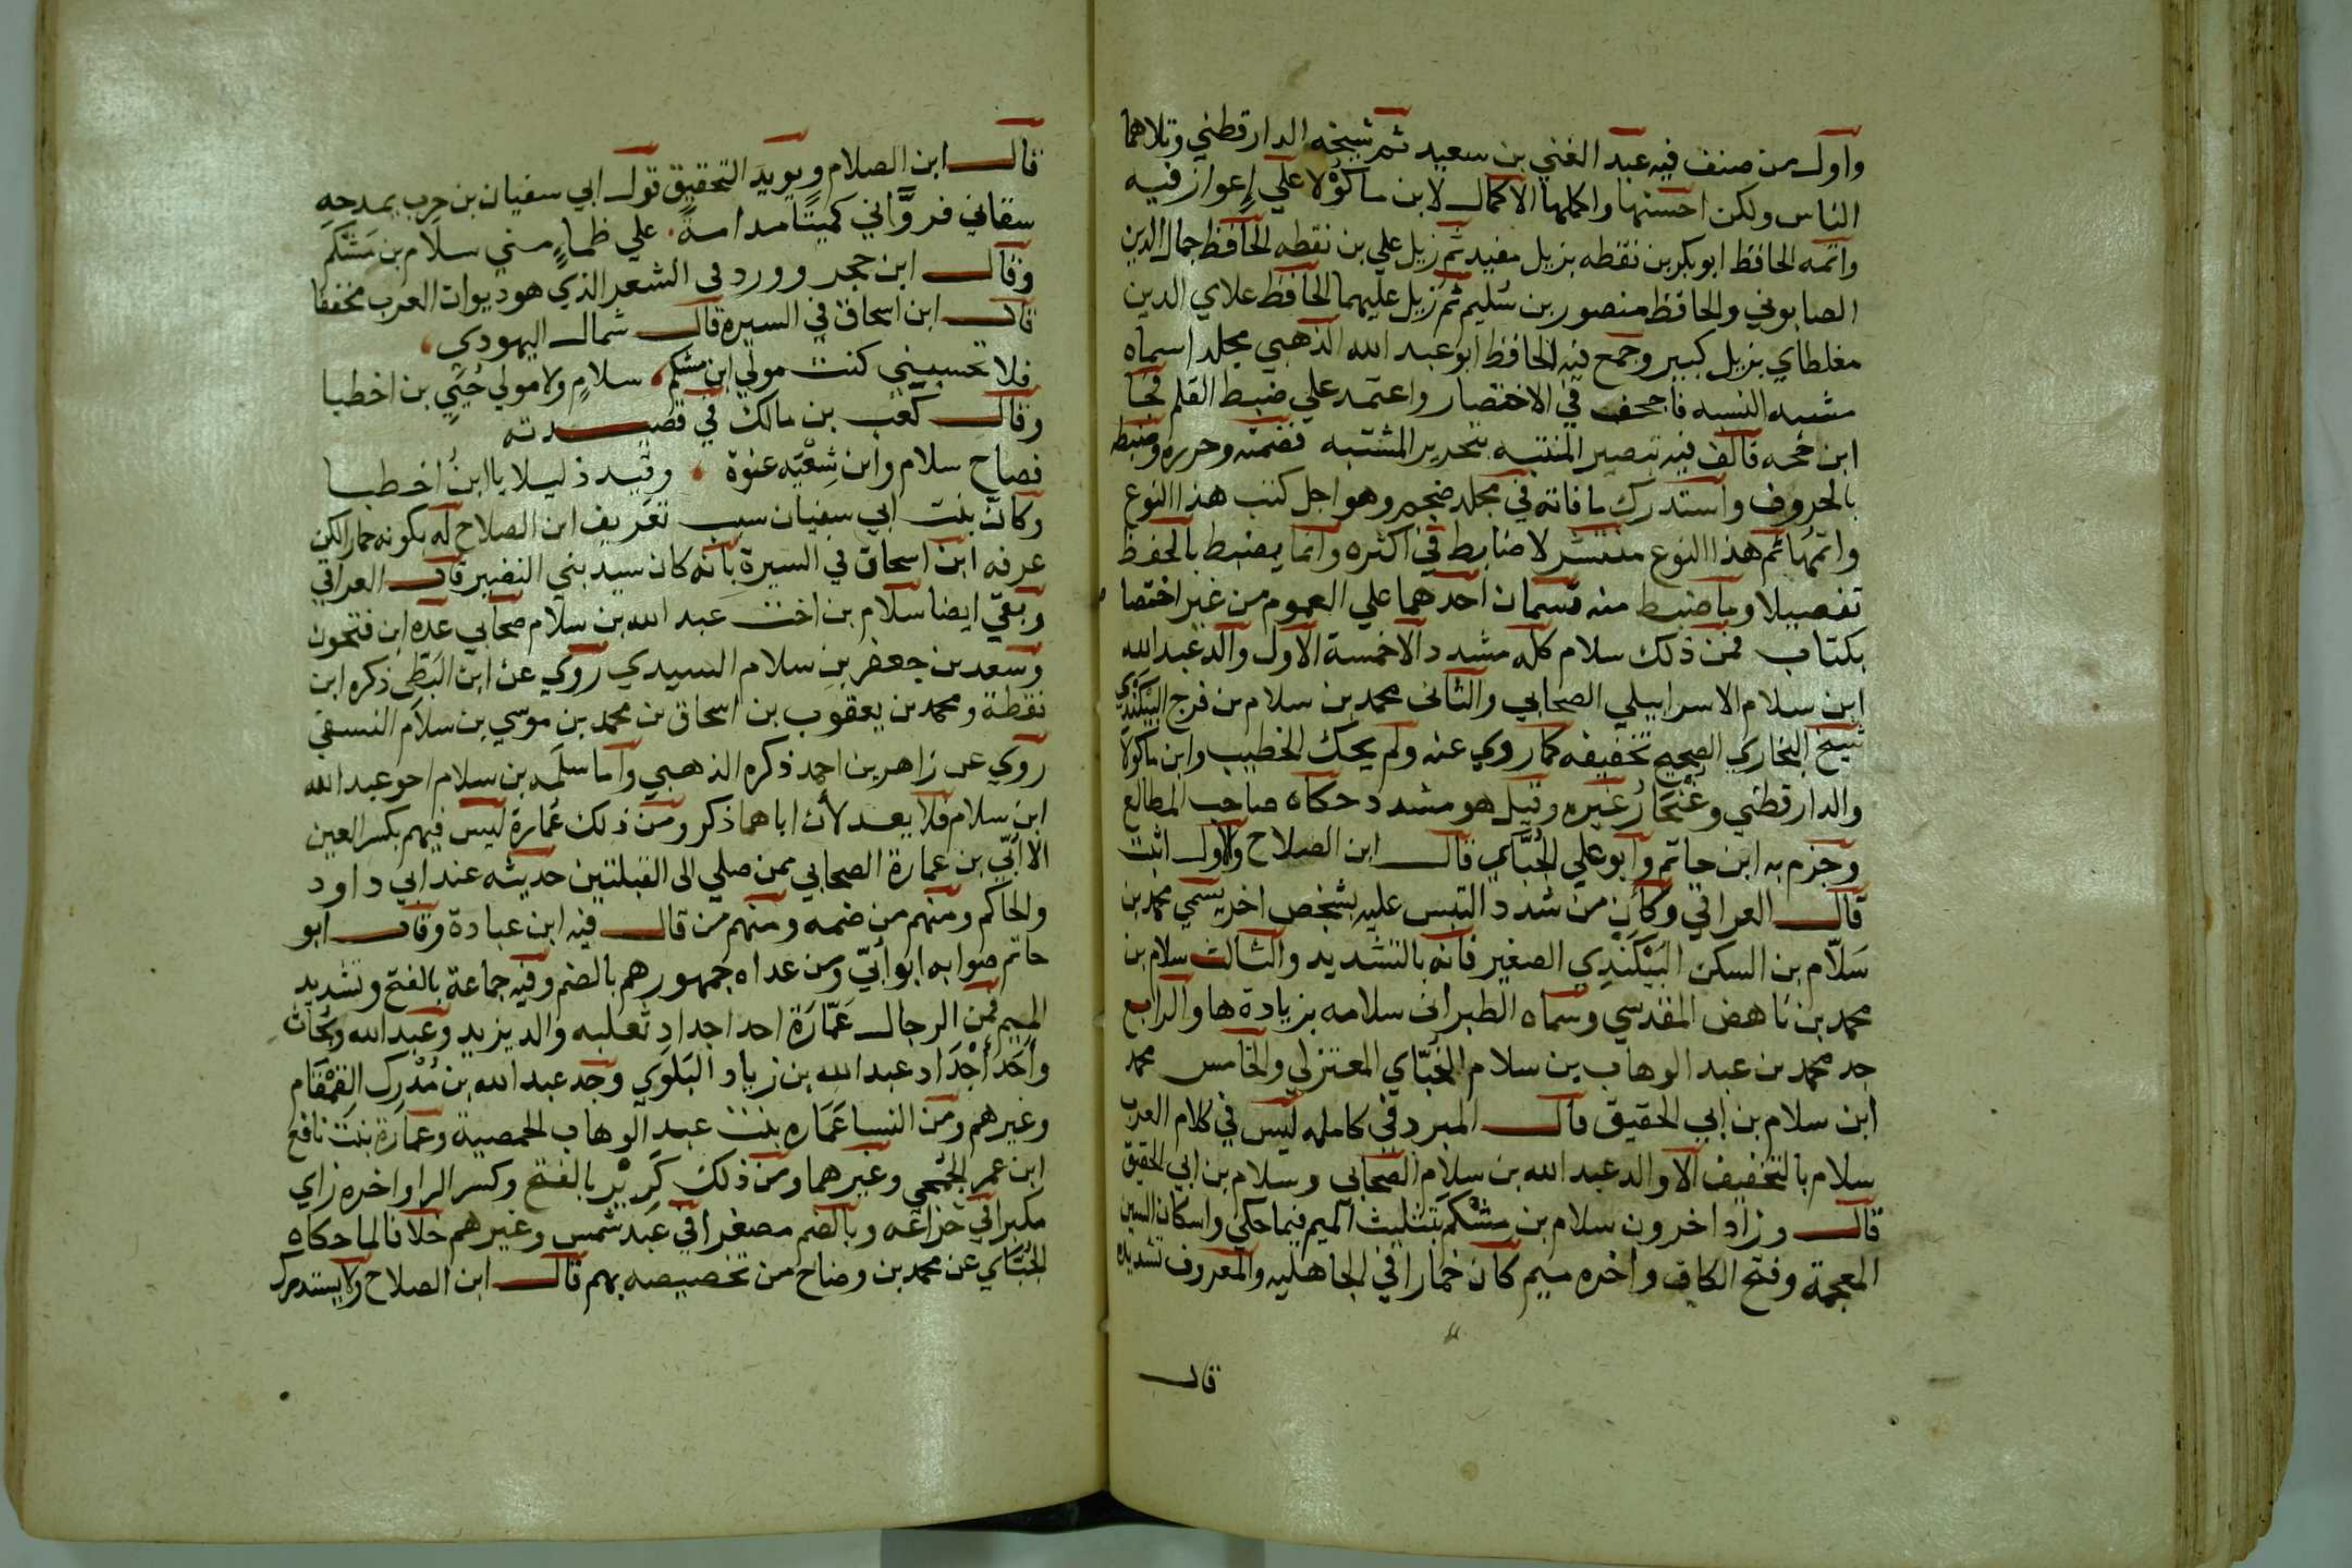 واول من صنف فيه عبد الغني بن سعيد ثم شيخه الدارقطني وتلاهما
الناس ولكن احسنها واكملها الاكمال لابن ماكولا علي إعواز فيه
واتمه الحافظ ابو بكر بن نقطه بزيل مفيد ثم زيل علي بن نقطه الحافظ جمال الدين
الصابوني والحافظ منصور بن سليم ثم زيل عليهما الحافظ علاي الدين
مغلطاي بزيل كبير وجمع فيه الحافظ ابو عبد الله الذهبي مجلد اسماه
مشبه النسبه فاجحف في الاختصار واعتمد علي ضبط القلم فجا
ابن حجه فالف فيه تبصير المنتبه بتحرير المشتبه فضمنه وحرره وضبط
بالحروف واستدرك ما فاته في مجلد ضخم وهو اجل كتب هذا النوع
واتمها ثم هذا النوع منتشر لا ضابط في اكثره وانما يضبط بالحفظ
تفصيلا وما ضبط منه قسمان احدهما علي العموم من غير اختصا
بكتاب فمن ذلك سلام كله مشدد الا خمسة الاول والد عبد الله
ابن سلام الاسرايلي الصحابي والثاني محمد بن سلام بن فرج البيكندي
شيخ البخاري الصحيح تخفيفه كما روي عنه ولم يحك الخطيب وابن ماكولا
والدارقطني وغنجار غيره وقيل هو مشدد حكاه صاحب المطالع
وجزم به ابن حاتم وابو علي الجبَّاي قال ابن الصلاح والاول اثبت
قال العراقي وكأن من شدد التبس عليه بشخص اخر يسمي محمد بن
سَلّام بن السكن البَيْكَندِي الصغير فانه بالتشديد والثالث سلام بن
محمد بن ناهض المقدسي وسماه الطبراني سلامه بزيادة ها والرابع
جد محمد بن عبد الوهاب بن سلام الجُبّاي المعتزلي والخامس محمد
ابن سلام بن ابي الحقيق قال المبرد في كامله ليس في كلام العرب
سلام بالتخفيف الا والد عبد الله بن سلام الصحابي وسلام بن ابي الحقيق
قال وزاد اخرون سلام بن مشْكَم بتثليث الميم فيما حكي واسكان الشين
المعجمة وفتح الكاف واخره ميم كان خمارا في الجاهليه والمعروف تشديده
قال
قال ابن الصلام ويويد التحقيق قول ابي سفيان بن حرب يمدحه
سقاني فروَّاني كميتًا مدامةً علي ظماءٍ مني سلام بن مَشكَم
وقال ابن حجر وورد في الشعر الذي هو ديوان العرب مخففا
قال ابن اسحاق في السيرة قال شمال اليهودي
فلا تحسبيني كنت مولي ابن مشكم سلامٍ ولا مولي حُيَيِ بن اخطبا
وقال كعب بن مالك في قصيدته
فصاح سلام وابن شِعْيَه عنوة وقيد ذليلا يا ابن اخطبا
وكان بنت ابي سفيان سبب تعريف ابن الصلاح له بكونه خمارا لكن
عرفه ابن اسحاق في السيرة بانه كان سيد بني النضير قال العراقي
وبقي ايضا سلام بن اخت عبد الله بن سلام صحابي عده ابن فتحون
وسعد بن جعفر بن سلام السيدي روي عن ابن البَطّي ذكره ابن
نقطة ومحمد بن يعقوب بن اسحاق بن محمد بن موسي بن سلام النسفي
روي عن زاهر بن احمد ذكره الذهبي واما سلمه بن سلام اخو عبد الله
ابن سلام فلا يعد لأن اباهما ذكر ومن ذلك عُمارة ليس فيهم بكسر العين
الا أُبَيّ بن عمارة الصحابي ممن صلي الى القبلتين حديثه عند ابي داود
والحاكم ومنهم من ضمه ومنهم من قال فيه ابن عبادة وقال ابو
حاتم صوابه ابو أُبَيّ ومن عداه جمهورهم بالضم وفيه جماعة بالفتح وتشديد
الميم فمن الرجال عَمّارَة احد اجداد ثعلبه والد يزيد وعبد الله وبُحاث
وأحَد أجْدَاد عبد الله بن زياد البَلَوي وجد عبد الله بن مُدْرِك القَمْقَام
وغيرهم ومن النسا عَمَاره بنت عبد الوهاب الحمصية وعمَارة بنت نافع
ابن عمر الجُمَحي وغيرهما ومن ذلك كَرِيْز بالفتح وكسر الرا واخره زاي
مكبرا في خزاعه وبالضم مصغرا في عبد شمس وغيرهم خلافا لما حكاه
الجُبّاي عن محمد بن وضاح من تخصيصه بهم قال ابن الصلاح ولا يستدرك